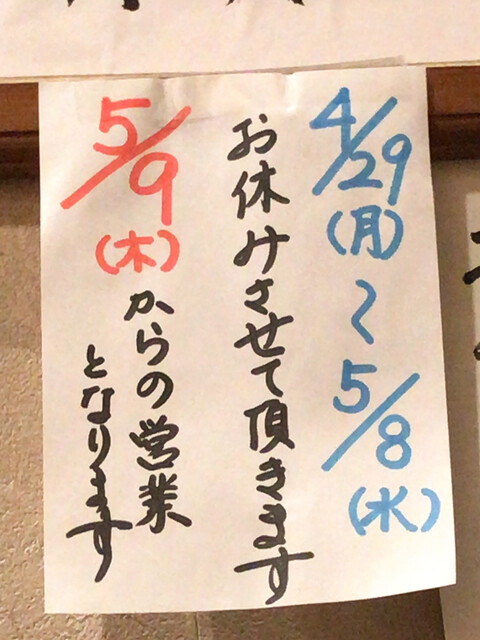 4/29(月)〜5/8(水)
お休みさせて頂きます
5/9(木)からの営業
となります